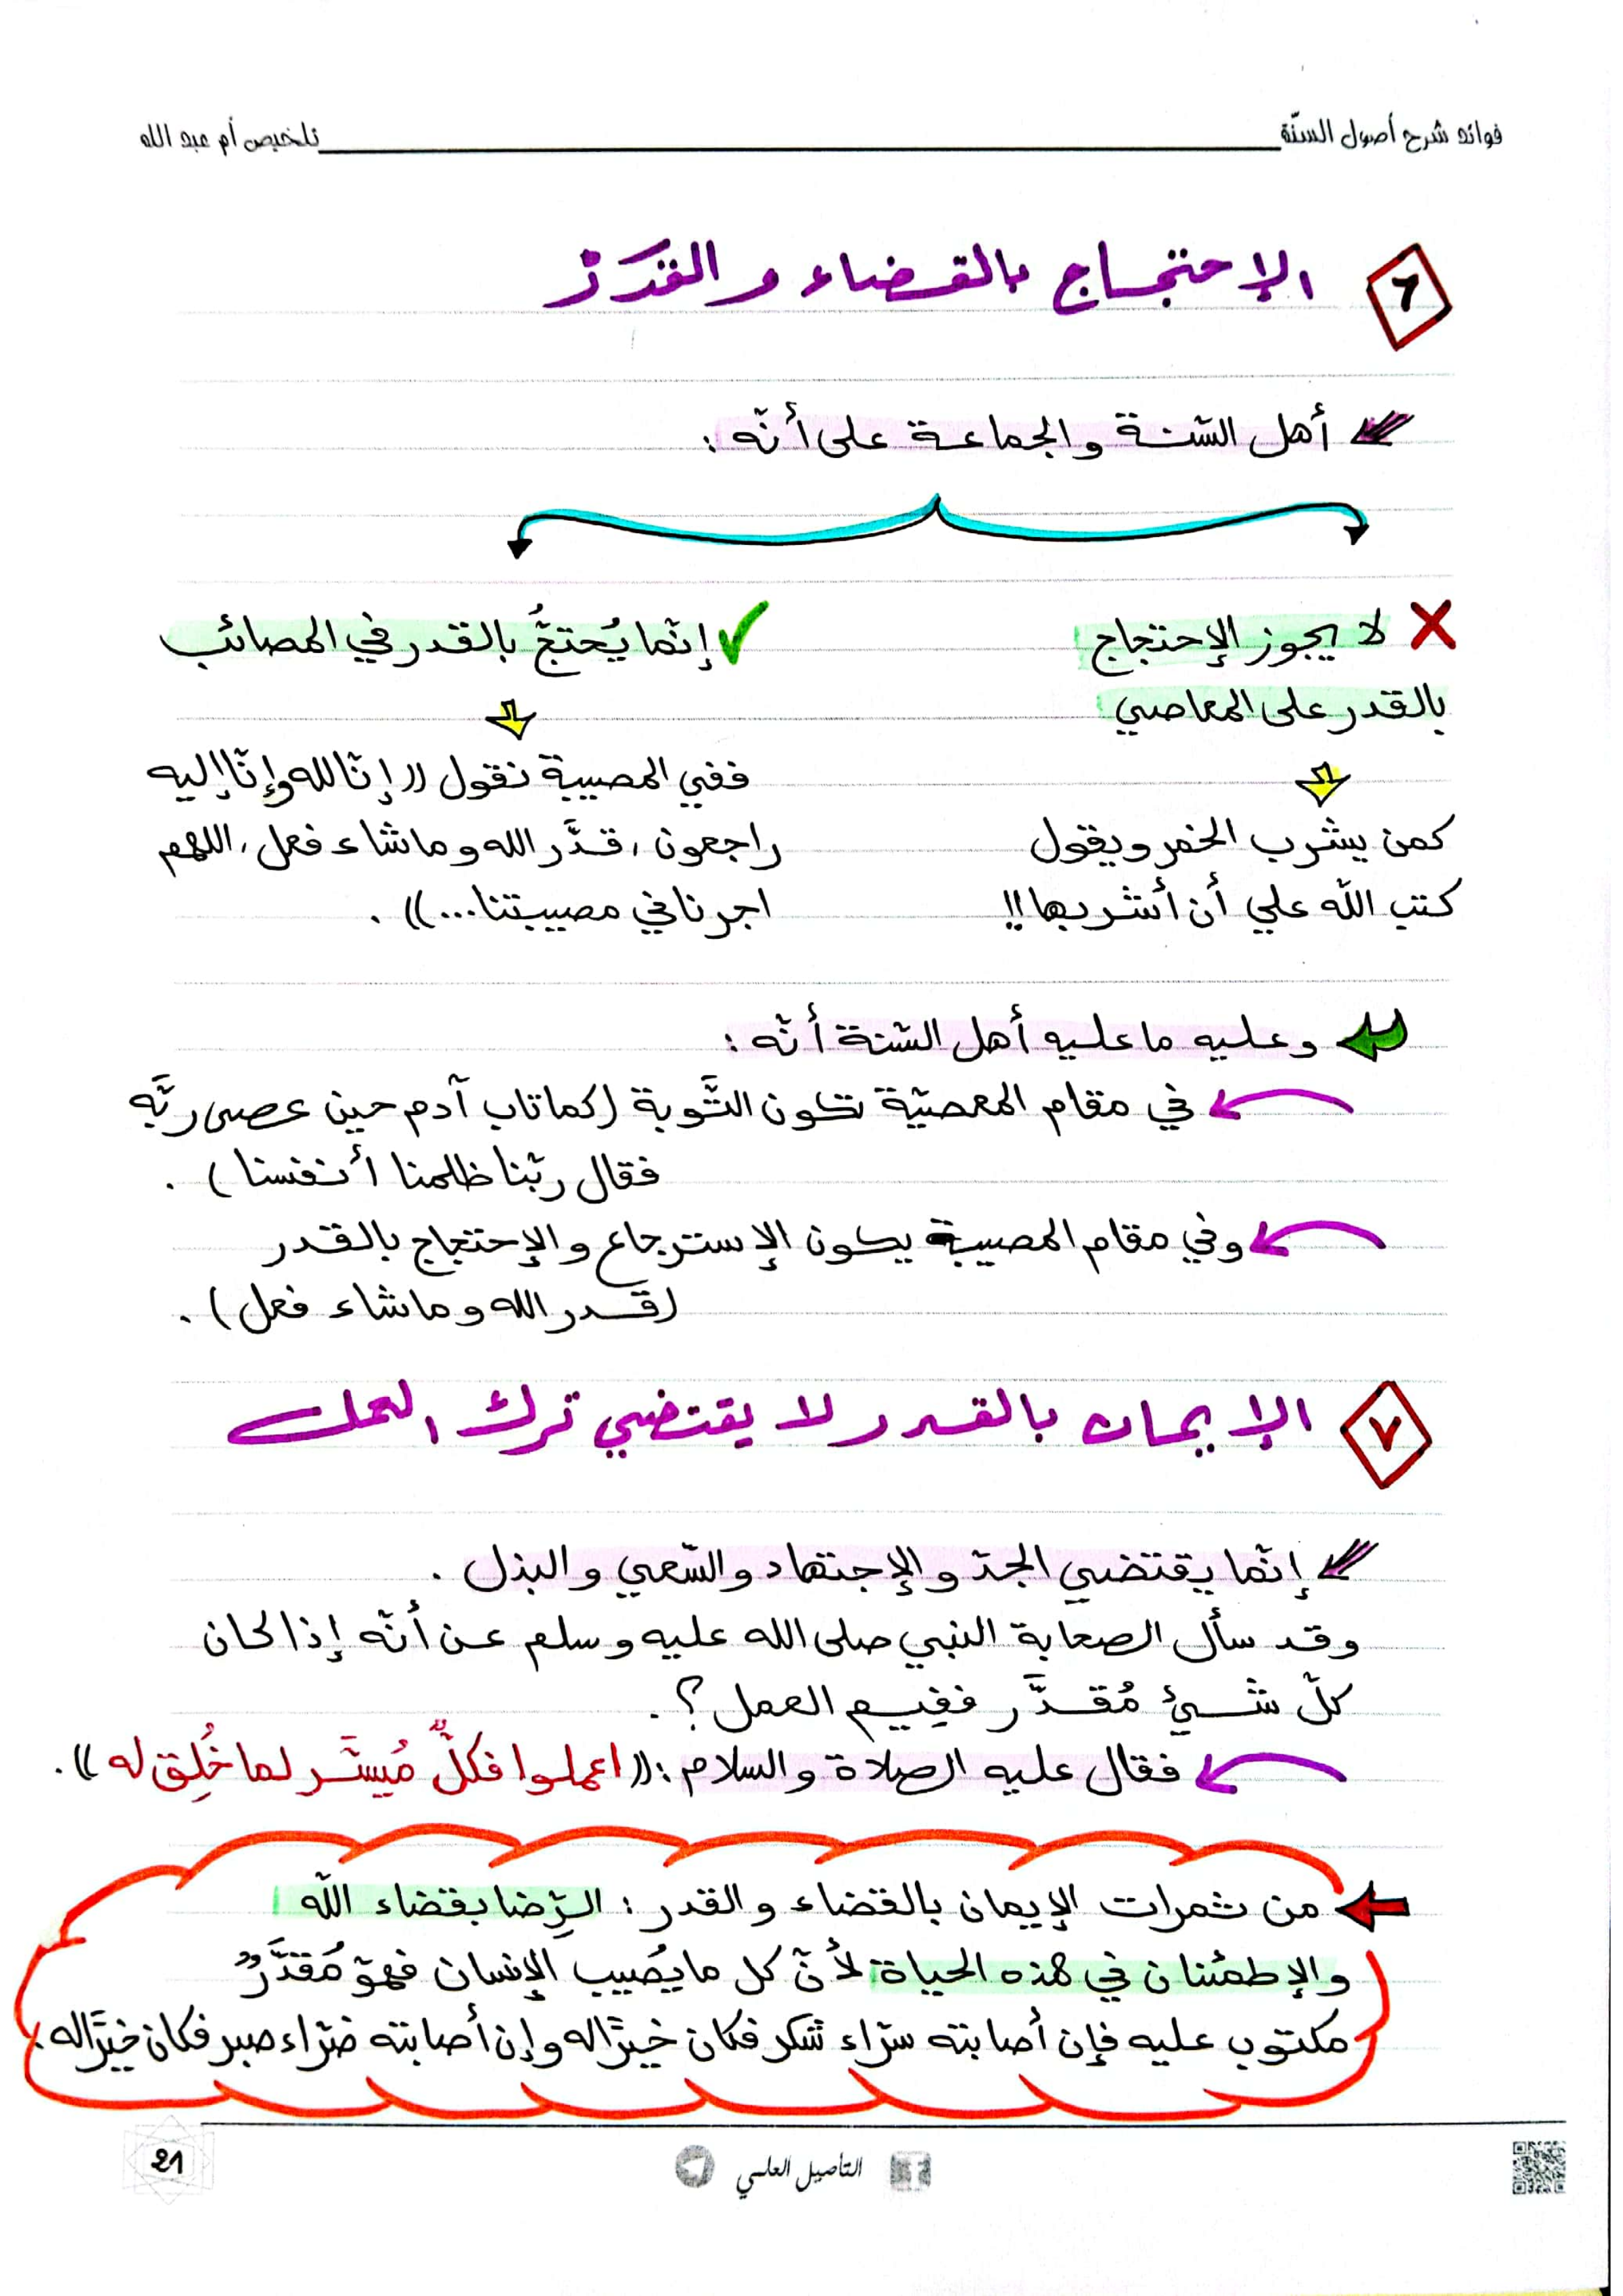 فوائد شرح أصول السنّة
تلخيص أم عبد الله
٦ الإحتجاج بالقضاء والقدَرْ
أهل السّنة والجماعة على أنّه :
لا يجوز الإحتجاج
بالقدر على المعاصي
كمن يشرب الخمر ويقول
كتب الله علي أن أشربها !!
إنّما يُحتجُّ بالقدر في المصائب
ففي المصيبة نقول (( إنّا لله وإنّا إليه
راجعون ، قدَّر الله وما شاء فعل ، اللهم
اجرنا في مصيبتنا ... )) .
وعليه ما عليه أهل السّنة أنّه :
في مقام المعصيّة تكون التَّوبة (كما تاب آدم حين عصى ربَّه
فقال ربّنا ظلمنا أنفسنا ) .
وفي مقام المصيبة يكون الإسترجاع والإحتجاج بالقدر
(قدر الله وما شاء فعل ) .
٧ الإيمان بالقدر لا يقتضي ترك العمل
إنّما يقتضي الجدّ والإجتهاد والسّعي والبذل .
وقد سأل الصحابة النبي صلى الله عليه وسلم عن أنّه إذا كان
كلّ شيئ مُقدَّر ففيم العمل ؟ .
فقال عليه الصلاة والسلام : (( اعملوا فكلٌّ مُيسَّر لما خُلِق له )) .
من ثمرات الإيمان بالقضاء والقدر : الرِّضا بقضاء الله
والإطمئنان في هذه الحياة لأنّ كل ما يُصيب الإنسان فهو مُقدَّرٌ
مكتوب عليه فإن أصابته سرّاء شكر فكان خيرًا له وإن أصابته ضرّاء صبر فكان خيرًا له .
التأصيل العلمي
21